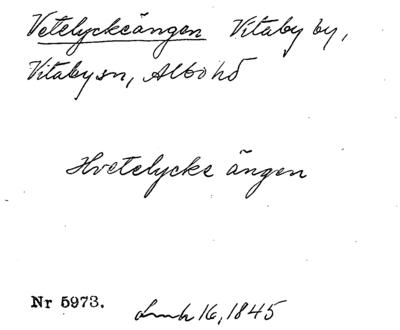 Vetelyckeängen Vitaby by,
Vitaby sn, Albo hd
Hvetelycke ängen
Nr 5973.
Lmk 16, 1845